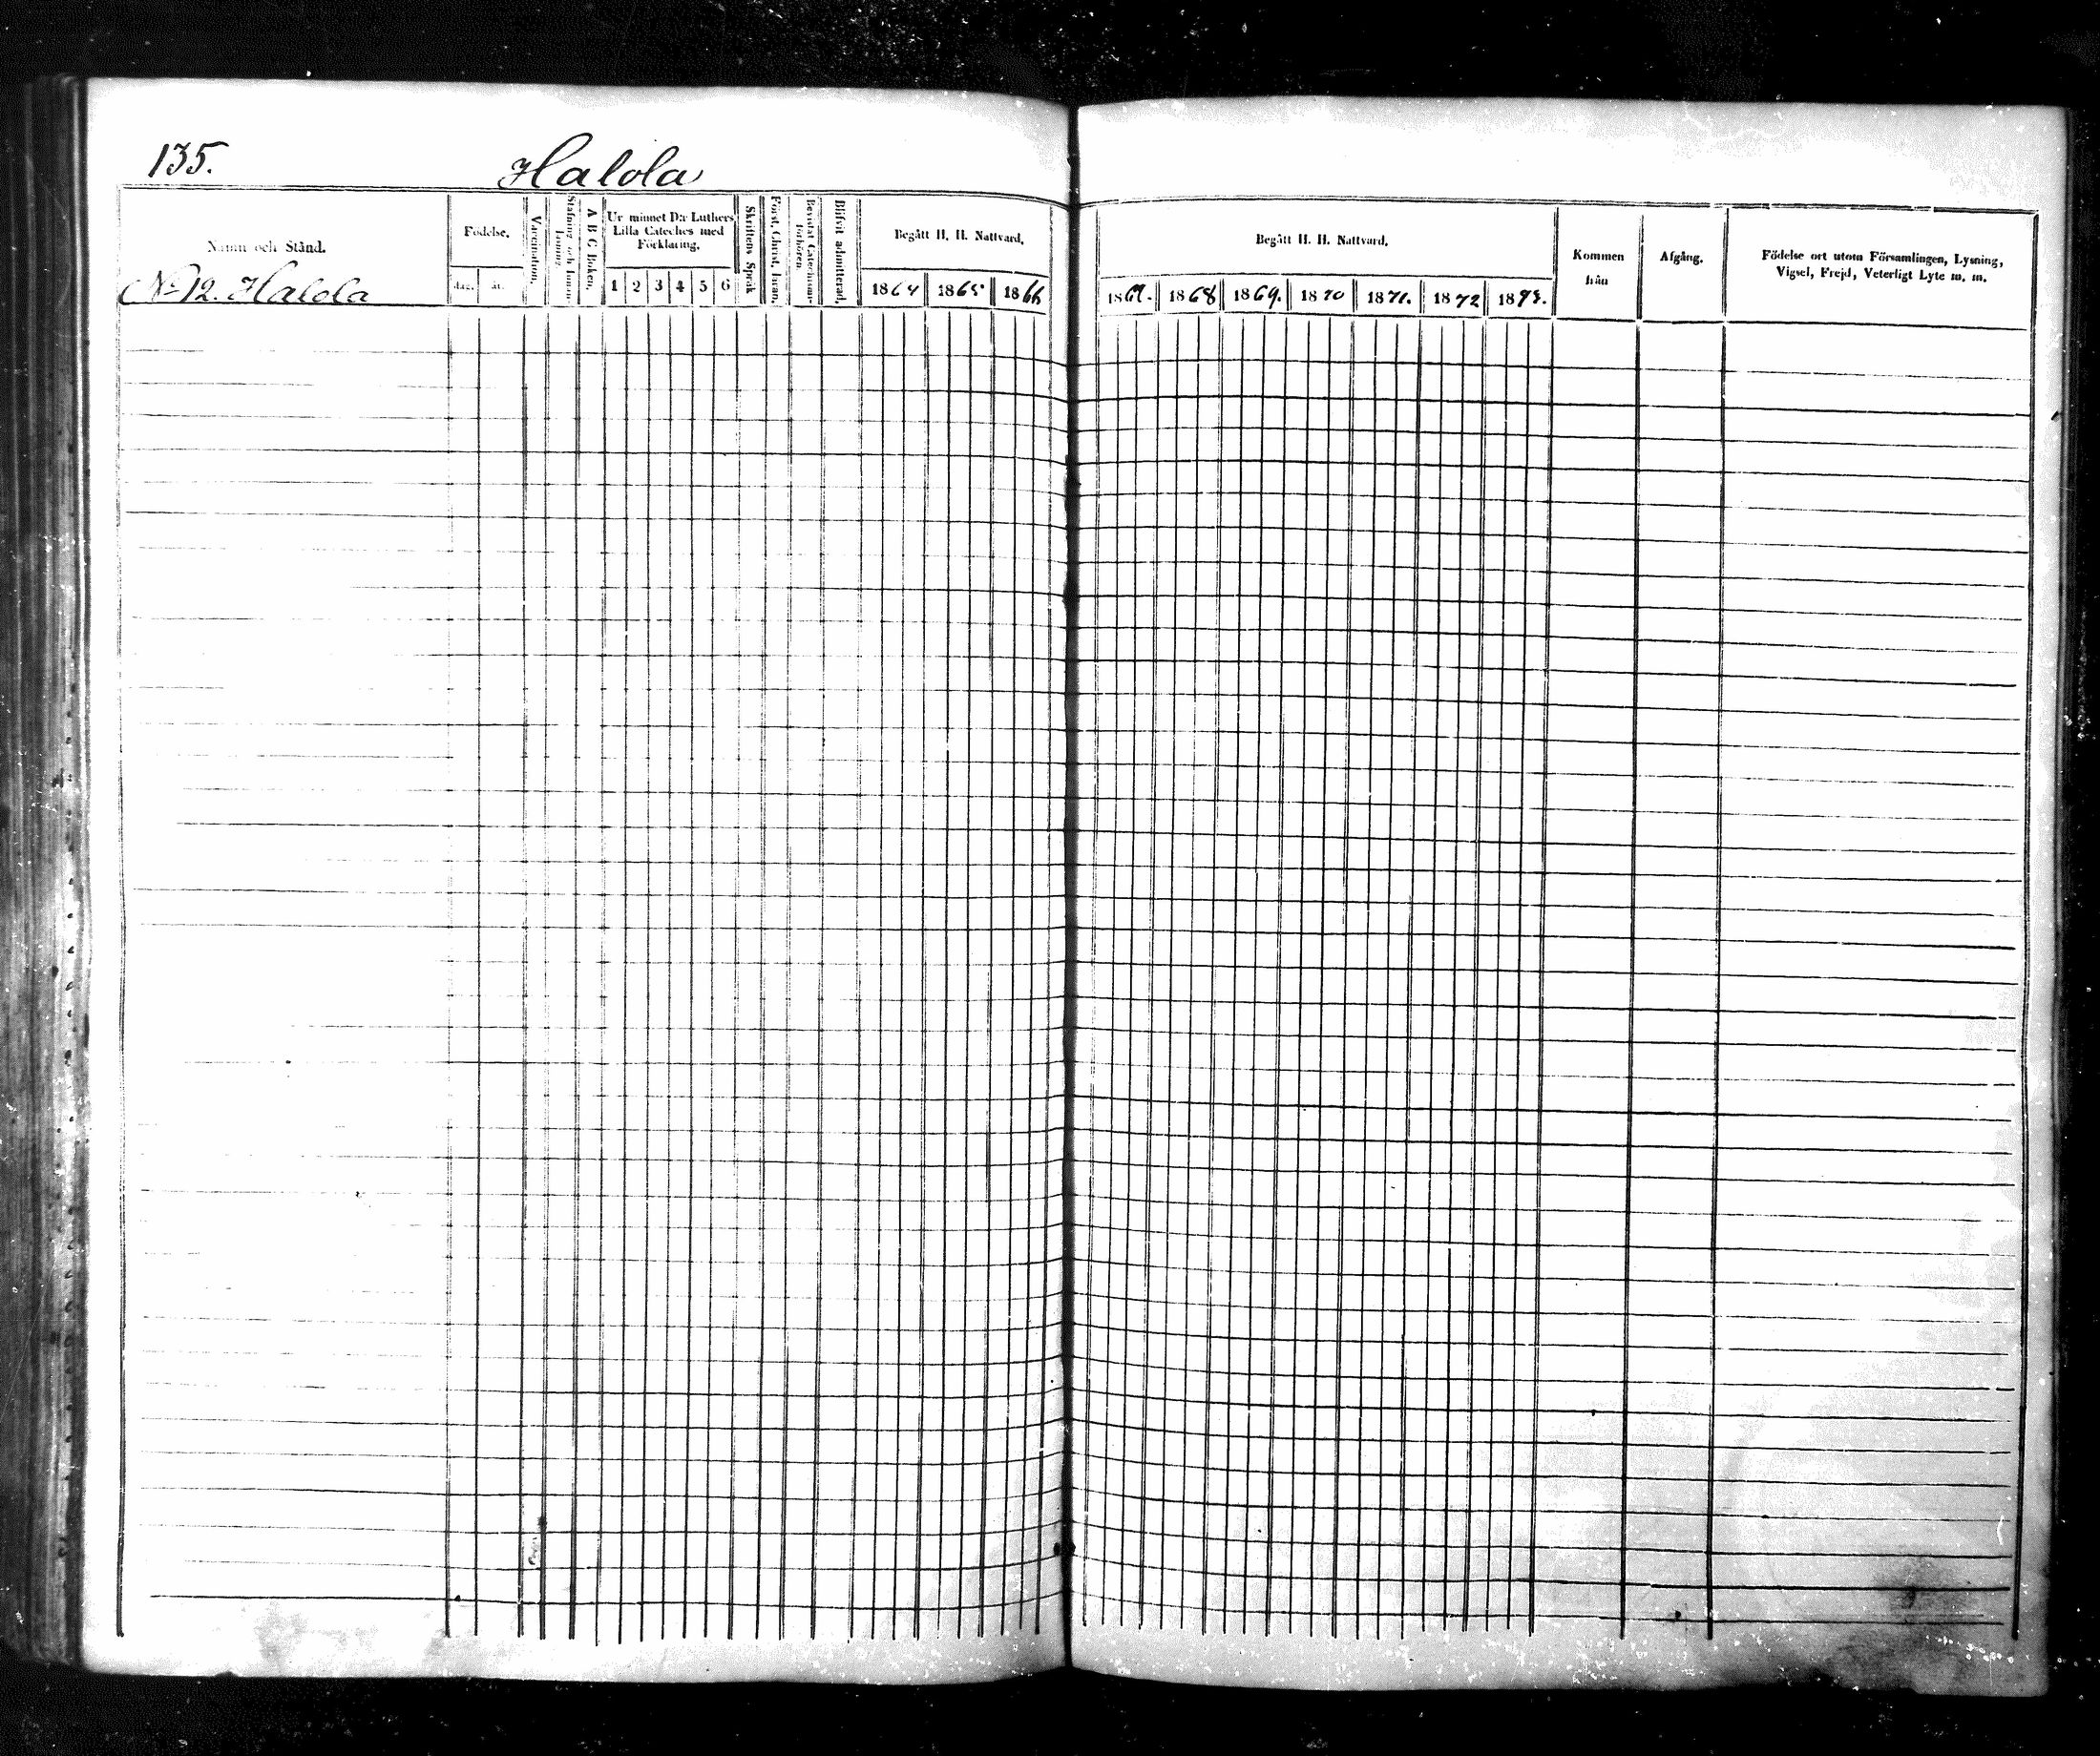 135.
Halola
Namn och Stånd.
No 12. Halola
Födelse.
dag. år.
Vaccination.
Stafning och Innan-
läsning.
A B C Boken.
Ur minnet D:r Luthers
Lilla Cateches med
Förklaring.
1 2 3 4 5 6
Skriftens Språk
Först. Christ. Läran.
Bevistat Catechismi-
förhören.
Blifvit admitterad.
Begått H. H. Nattvard.
1864 1865 1866
Begått H. H. Nattvard.
1867. 1868 1869. 1870 1871. 1872 1873.
Kommen
från
Afgång.
Födelse ort utom Församlingen, Lysning,
Vigsel, Frejd, Veterligt Lyte m. m.